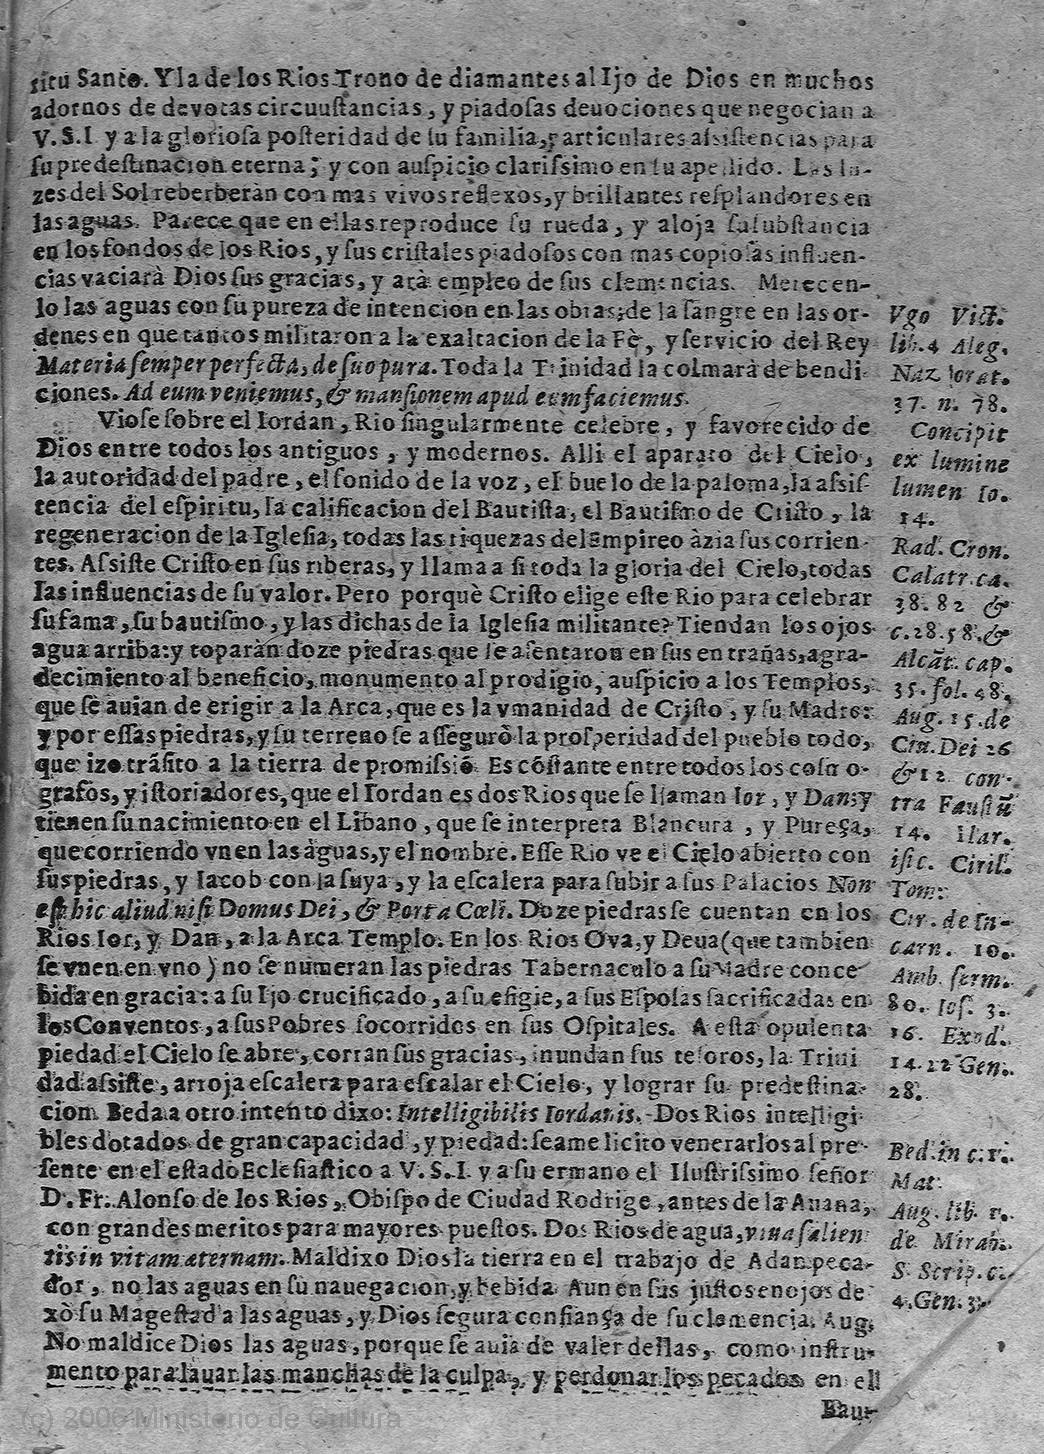 ritu Santo. Y la de los Rios Trono de diamantes al Ijo de Dios en muchos
adornos de devotas circuustancias, y piadosas deuociones que negocian a
V.S.I. y a la gloriosa posteridad de su familia, particulares assistencias para
su predestinacion eterna; y con auspicio clarissimo en su apellido. Las lu-
zes del Sol reberberàn con mas vivos reflexos, y brillantes resplandores en
las aguas. Parece que en ellas reproduce su rueda, y aloja su substancia
en los fondos de los Rios, y sus cristales piadosos con mas copiosas influen-
cias vaciarà Dios sus gracias, y arà empleo de sus clemencias. Merecen-
lo las aguas con su pureza de intencion en las obras; de la sangre en las or-
denes en que tantos militaron a la exaltacion de la Fè, y servicio del Rey
Materia semper perfecta, de suo pura. Toda la Trinidad la colmarà de bendi-
ciones. Ad eum veniemus, & mansionem apud eum faciemus.
Viose sobre el Iordan, Rio singularmente celebre, y favorecido de
Dios entre todos los antiguos, y modernos. Alli el aparato del Cielo,
la autoridad del padre, el sonido de la voz, el buelo de la paloma, la assis-
tencia del espiritu, la calificacion del Bautista, el Bautismo de Cristo, la
regeneracion de la Iglesia, todas las riquezas del Empireo àzia sus corrien-
tes. Assiste Cristo en sus riberas, y llama a si toda la gloria del Cielo, todas
las influencias de su valor. Pero porquè Cristo elige este Rio para celebrar
su fama, su bautismo, y las dichas de la Iglesia militante? Tiendan los ojos
agua arriba: y toparàn doze piedras que se asentaron en sus entrañas, agra-
decimiento al beneficio, monumento al prodigio, auspicio a los Templos,
que se auian de erigir a la Arca, que es la vmanidad de Cristo, y su Madre:
y por essas piedras, y su terreno se assegurò la prosperidad del pueblo todo,
que izo trāsito a la tierra de promissiō. Es cōstante entre todos los cosm o-
grafos, y istoriadores, que el Iordan es dos Rios que se llaman Ior, y Dan; y
tienen su nacimiento en el Libano, que se interpreta Blancura, y Pureça,
que corriendo vn en las aguas, y el nombre. Esse Rio ve el Cielo abierto con
sus piedras, y Iacob con la suya, y la escalera para subir a sus Palacios Non
est hic aliud nisi Domus Dei, & Porta Cœli. Doze piedras se cuentan en los
Rios Ior, y Dan, a la Arca Templo. En los Rios Ova, y Deva (que tambien
se vnen en vno) no se numeran las piedras Tabernaculo a su Madre conce
bida en gracia: a su Ijo crucificado, a su efigie, a sus Esposas sacrificadas en
los Conventos, a sus Pobres socorridos en sus Ospitales. A esta opulenta
piedad el Cielo se abre, corran sus gracias, inundan sus tesoros, la Trini
dad assiste, arroja escalera para escalar el Cielo, y lograr su predestina-
cion. Beda a otro intento dixo: Intelligibilis Iordanis. Dos Rios intelligi
bles dotados de gran capacidad, y piedad: seame licito venerarlos al pre-
sente en el estado Eclesiastico a V.S.I. y a su ermano el Ilustrissimo señor
D. Fr. Alonso de los Rios, Obispo de Ciudad Rodrige, antes de la Auana,
con grandes meritos para mayores puestos. Dos Rios de agua, viua salien
tis in vitam æternam. Maldixo Dios la tierra en el trabajo de Adan peca-
dor, no las aguas en su nauegacion, y bebida. Aun en sus justos enojos de
xò su Magestad a las aguas, y Dios segura confiança de su clemencia. Aug.
No maldice Dios las aguas, porque se auia de valer dellas, como instru-
mento para lauar las manchas de la culpa, y perdonar los pecados en el
Bau-
Vgo Vict.
lib. 4 Aleg.
Naz orat.
37. n. 78.
Concipit
ex lumine
lumen Io.
14.
Rad. Cron.
Calatr. ca.
38. 82 &
c. 28. 58. &
Alcāt. cap.
35. fol. 48.
Aug. 15. de
Ciu. Dei 26
& 12. con-
tra Faustū
14. Ilar.
isic. Ciril.
Tom:
Cir. de In-
carn. 10.
Amb. serm.
80. Ios. 3.
16. Exod.
14. 22 Gen.
28.
Bed. in c. 1.
Mat.
Aug. lib. 1.
de Mirab.
S. Scrip. c.
4. Gen. 3.
(c) 2006 Ministerio de Cultura